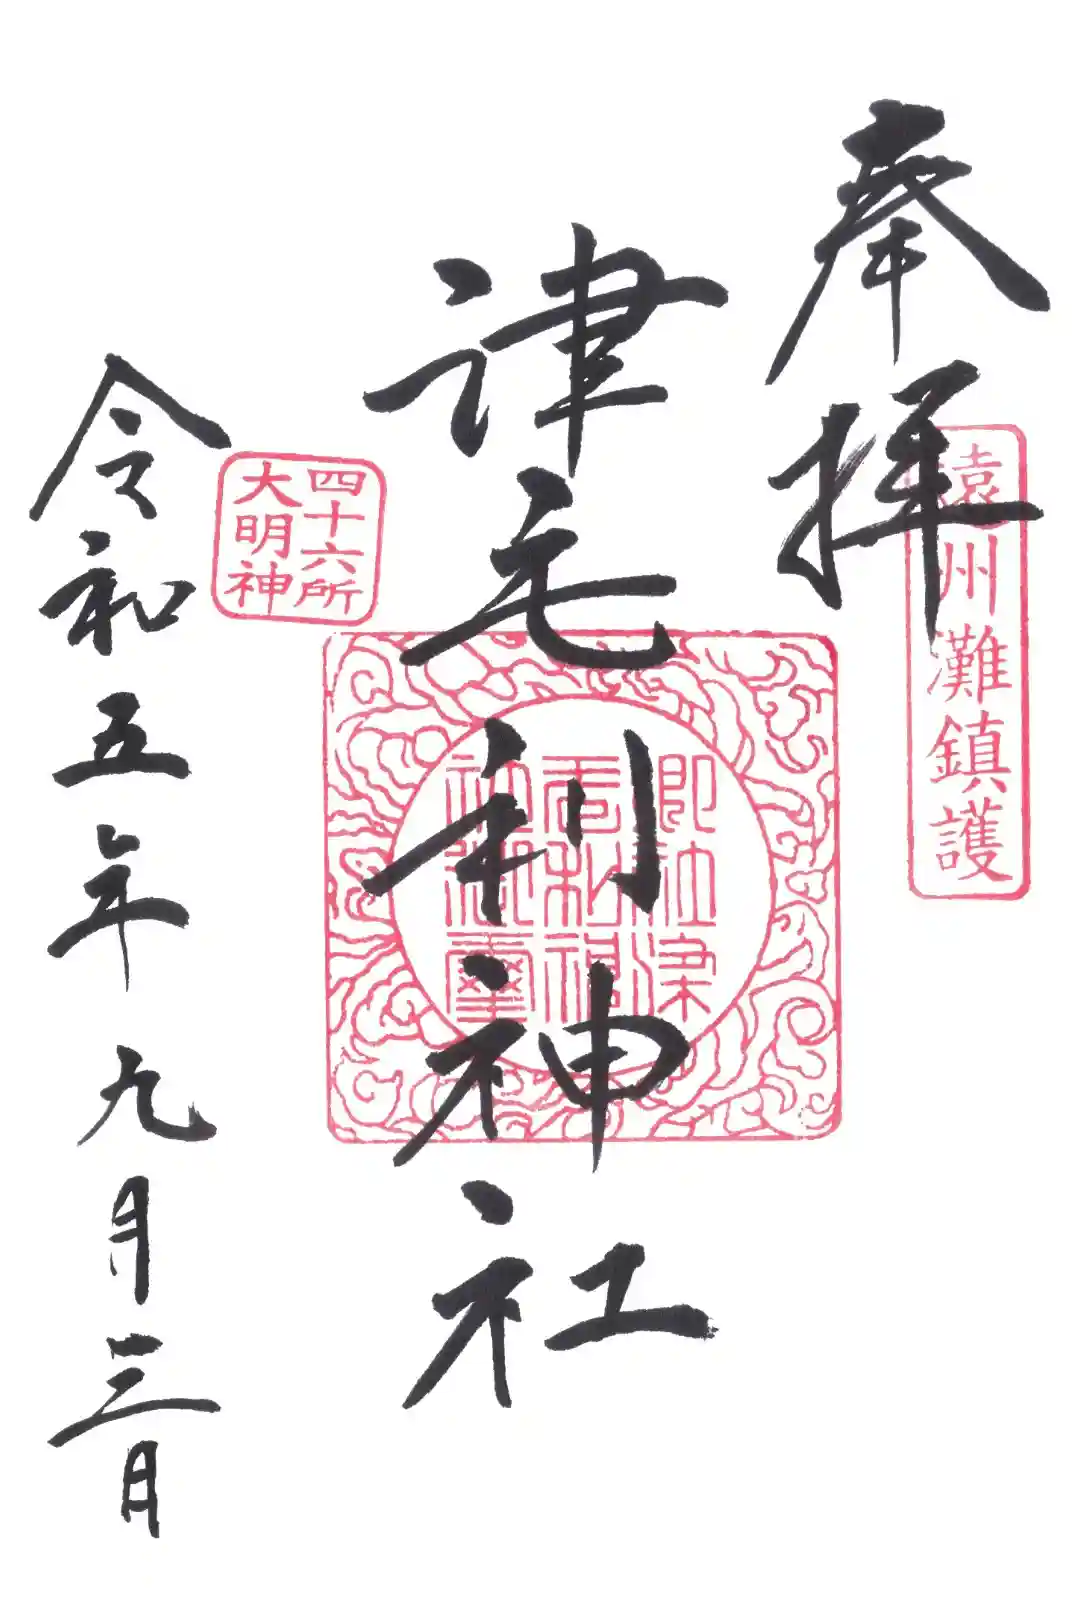 奉拝
遠州灘鎮護
津毛利神社
四十六所
大明神
令和五年九月三日